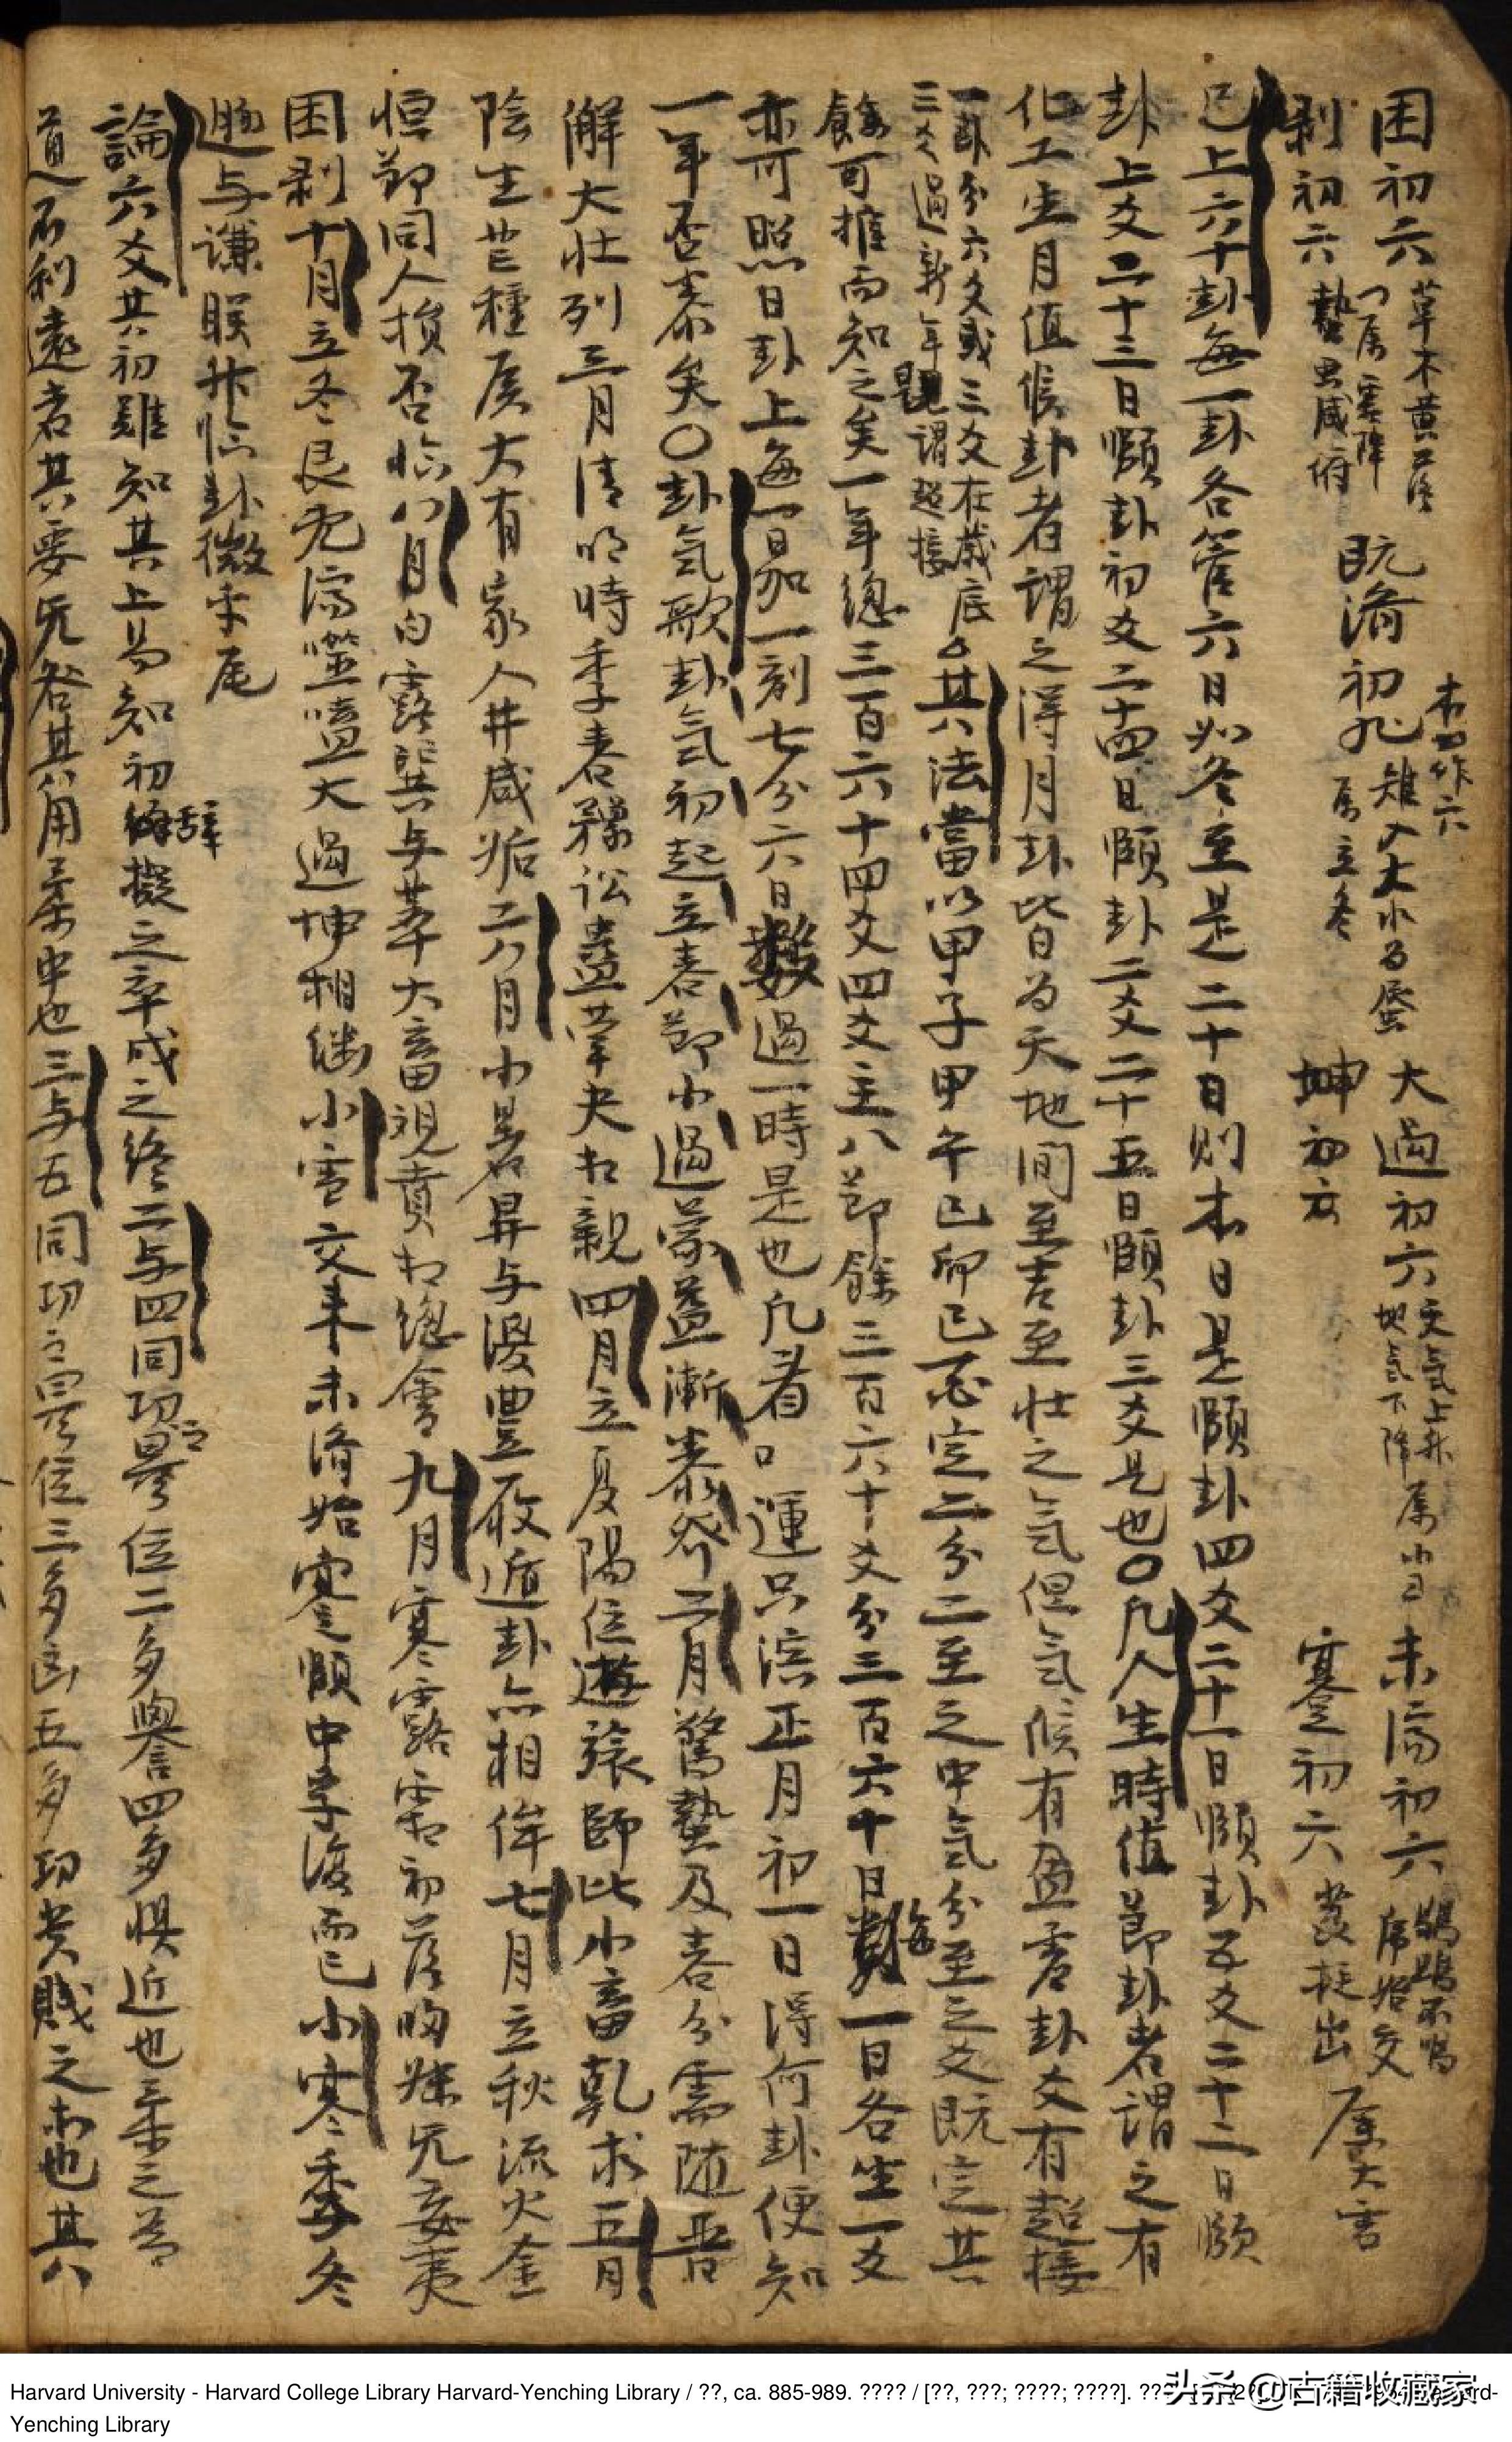 困初六 草木黄落 属霜降 既済初九 雉入大水為蜃 属立冬 本四作六 大過初六 天気上升 地気下降 属小雪 未済初六 鶡鴠不鳴 虎始交
剥初六 蟄虫咸俯 坤初六 蹇初六 荔挺出 属大雪
已上六十卦每一卦各管六日如冬至是二十日則本日是頤卦四爻二十一日頤卦五爻二十二日頤
卦上爻二十三日頤卦初爻二十四日頤卦二爻二十五日頤卦三爻是也〇凡人生時值節卦者謂之有
化工生月值候卦者謂之得月卦皆曰為天地間至吉至壮之气但气候有盈虚卦爻有超接
一卦分六爻或三爻在歲底
三爻過新年謂超接
其法當以甲子甲午己卯己酉定二分二至之中气分至之爻既定其
餘可推而知之矣一年總三百六十四爻四爻主八節餘三百六十爻分三百六十日每一日各生一爻
亦可照日卦上每一日加一刻七分六日数過一時是也凡看口運只滚正月初一日得何卦便知
一年否泰矣〇卦気歌卦气初起立春節小過蒙益漸泰终二月驚蟄及春分需随晋
解大壮列三月清明時季春豫訟蠱革夬相親四月立夏陽位遊旅師比小畜乾求五月
陰生芒種居大有家人井咸姤六月小暑昇与渙豊履遁卦亦相侔七月立秋流火金
恒節同人損否临八月白露巽与萃大畜視賁相總會九月寒露霜初落明殊无妄夷
困剥十月立冬艮既濟噬嗑大過坤相继小雪交来未済始蹇頤中孚復而已小寒季冬
迎与謙睽升临卦微乎尾
論六爻其初難知其上易知初辞擬之卒成之终二与四同功之異位二多譽四多惧近也柔之為
道不利遠者其要无咎其用柔中也三与五同功之異位三多凶五多功贵賤之等也其八